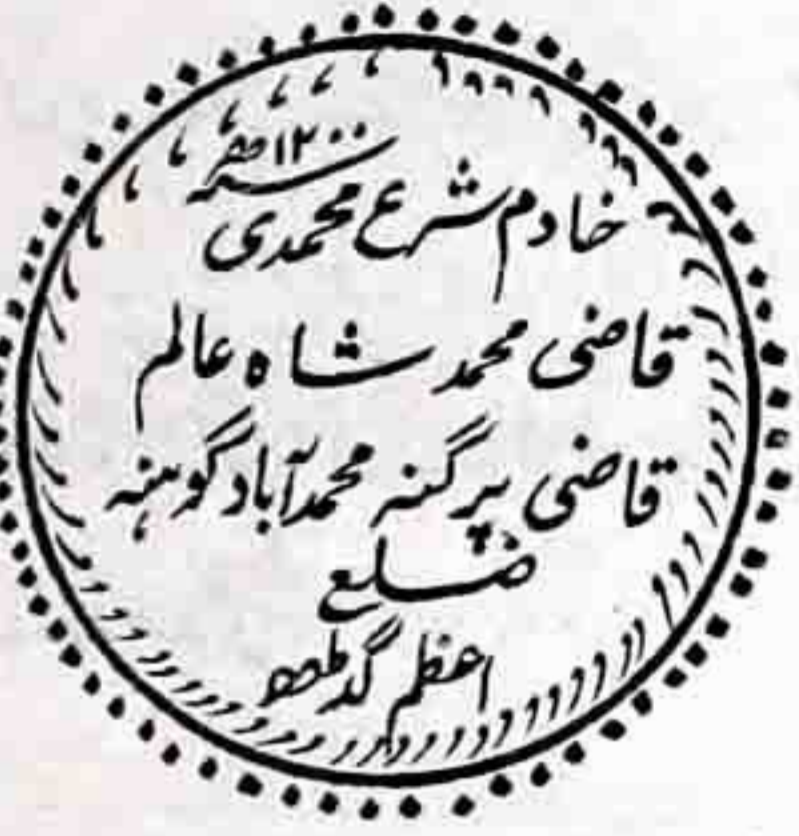 سنہ ۱۲۰۰
خادم شرع محمدی
قاضی محمد شاہ عالم
قاضی پرگنہ محمدآباد گوہنہ
ضلع
اعظم گڈھ